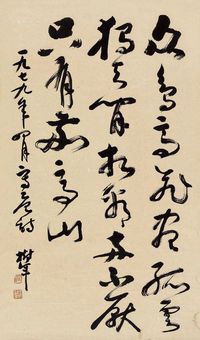 众鸟高飞尽孤雲
独去闲相看两不厌
只有敬亭山
一九七九年四月写李白诗